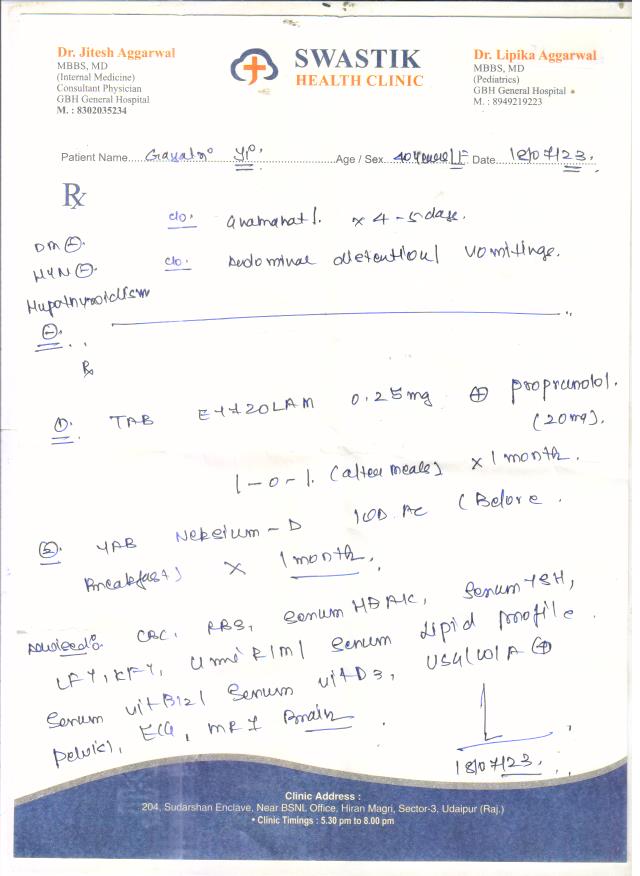 Dr. Jitesh Aggarwal
MBBS, MD
(Internal Medicine)
Consultant Physician
GBH General Hospital
M. : 8302035234
SWASTIK
HEALTH CLINIC
Dr. Lipika Aggarwal
MBBS, MD
(Pediatrics)
GBH General Hospital
M. : 8949219223
Patient Name.... Age / Sex. 40 years/F Date 18/07/23.
Rx
c/o. × 4-5 days.
DM ⊖.
c/o. Abdominal distention/ vomitings.
HTN ⊖.
Hypothyroidism
⊖.
Rx
①. TAB ETIZOLAM 0.25mg ⊕ propranolol.
(20mg).
1-0-1. (after meals) × 1 month.
②. TAB Neksium-D 1OD AC (Before
Breakfast) × 1 month.
Advised: CBC, RBS, Serum HbA1c, Serum TSH,
LFT, KFT, Urine R/M/ Serum Lipid profile
Serum vit B12/ Serum vit D3, USG/W/A ⊕
pelvis, ECG, MRI Brain
18/07/23.
Clinic Address :
204, Sudarshan Enclave, Near BSNL Office, Hiran Magri, Sector-3, Udaipur (Raj.)
• Clinic Timings : 5.30 pm to 8.00 pm